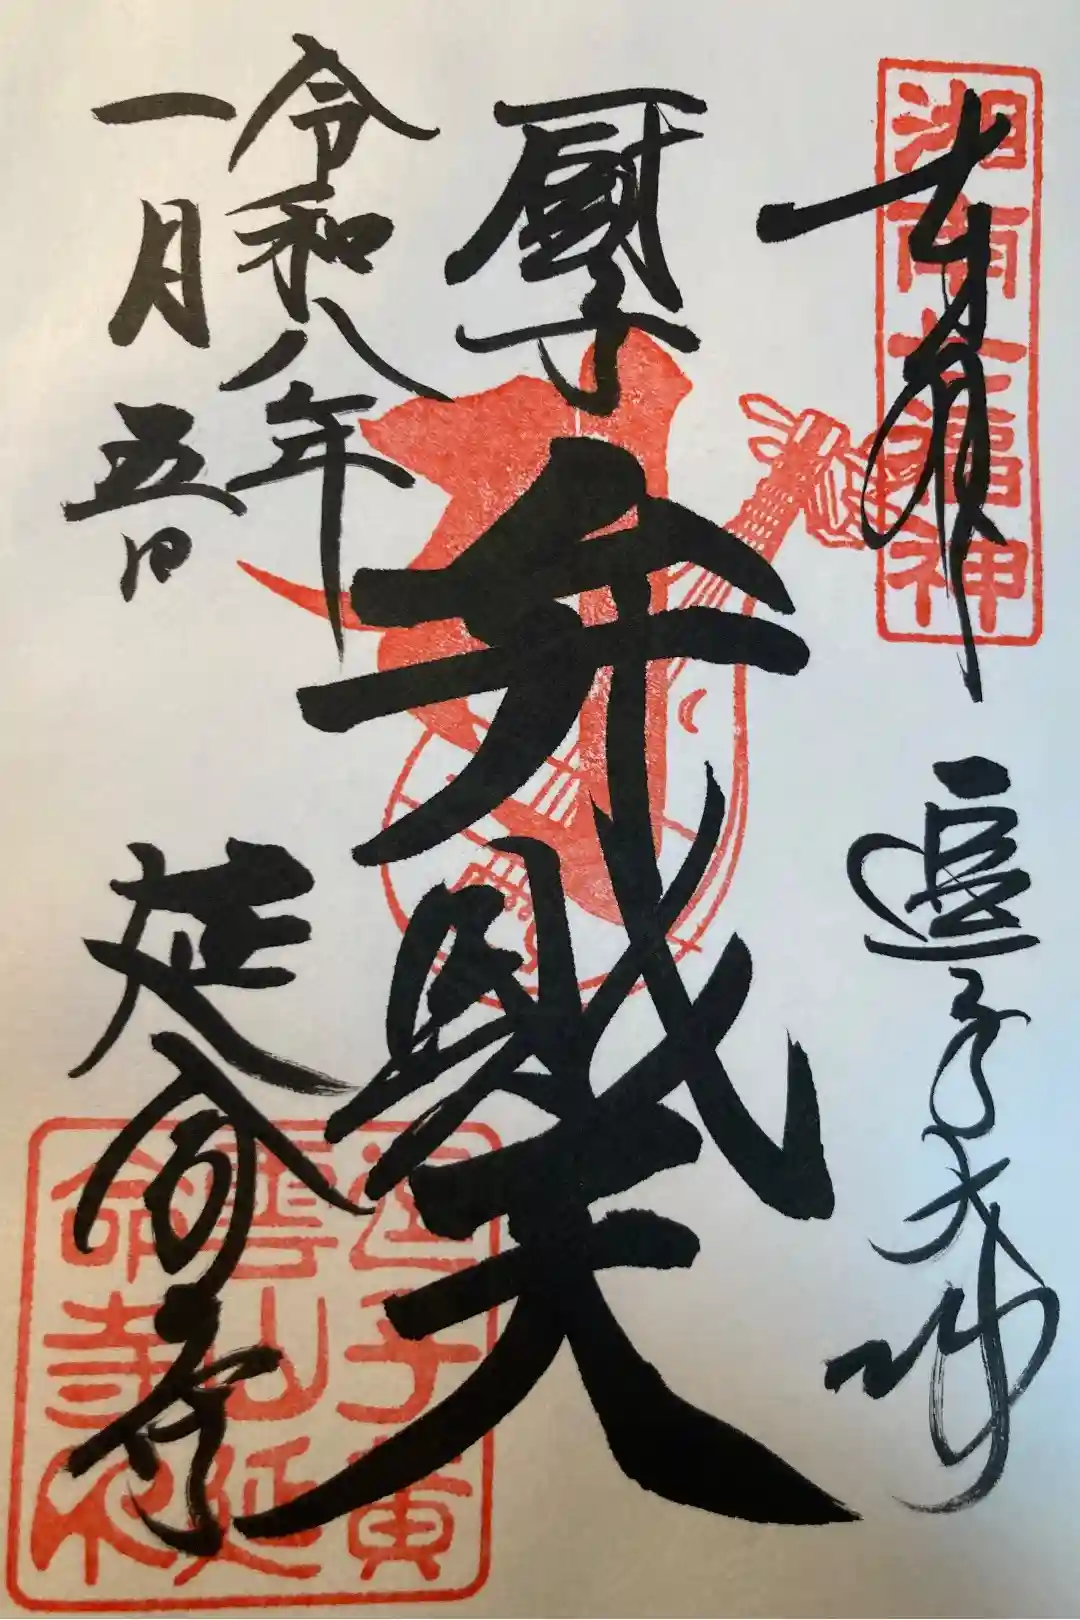 湘南七福神
奉拝
逗子大師
厨子
弁戝天
令和八年
一月五日
延命寺
逗子黄
雲山延
命寺印